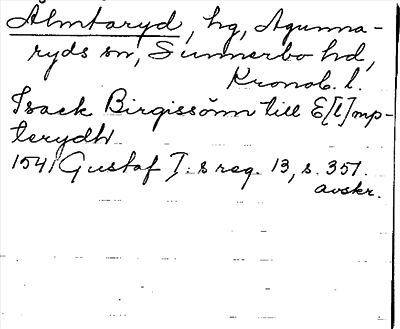 Älmtaryd, hg, Agunna-
ryds sn, Sunnerbo hd,
Kronob. l.
Isack Birgissönn till E[l]mp-
terydh
1541 Gustaf I:s reg. 13, s. 351.
avskr.